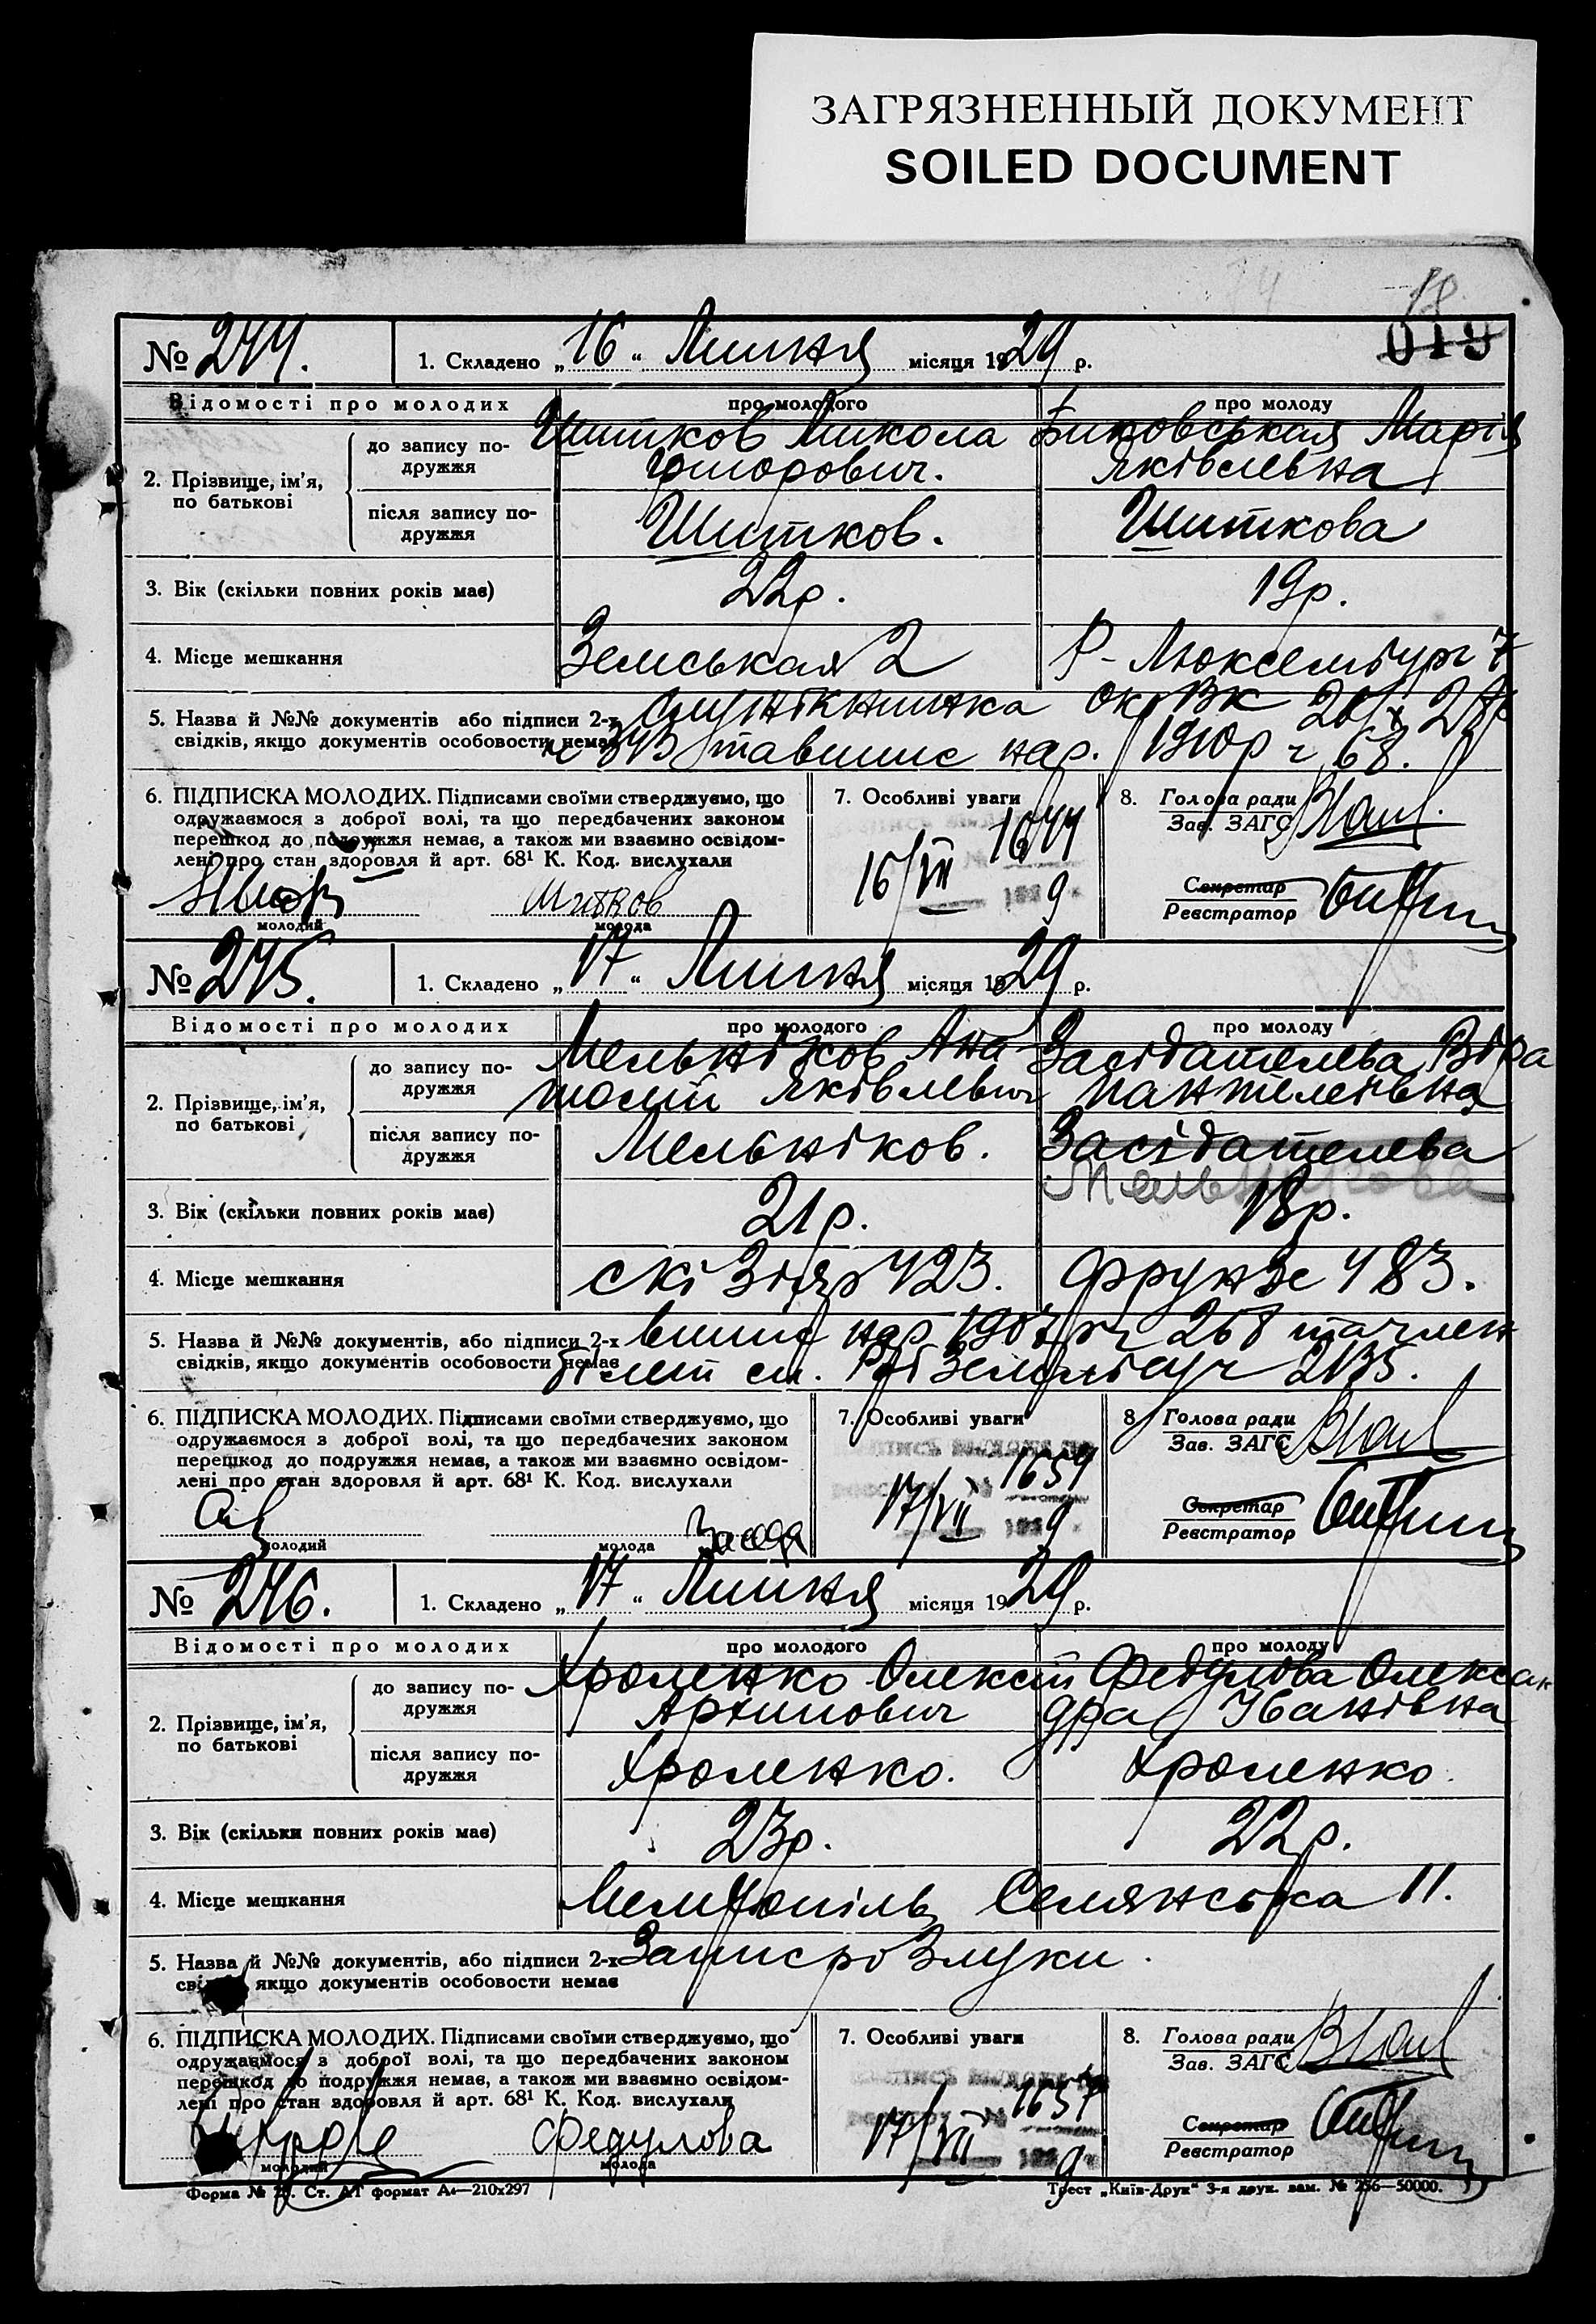 ЗАГРЯЗНЕННЫЙ ДОКУМЕНТ
SOILED DOCUMENT
18
019
№ 244. 1. Складено „16“ Липня місяця 1929 р.
Відомості про молодих про молодого про молоду
2. Прізвище, ім'я, по батькові
до запису подружжя Шитков Микола Биковськая Марія
Яківлевна
після запису подружжя Шитков. Шиткова
3. Вік (скільки повних років має) 22р. 19р.
4. Місце мешкання Земськая 2 Р-Люксембург 7
5. Назва й №№ документів або підписи 2-х
свідків, якщо документів особовости немає нар. 1910р ч 68.
6. ПІДПИСКА МОЛОДИХ. Підписами своїми стверджуємо, що
одружаємося з доброї волі, та що передбачених законом
перешкод до подружжя немає, а також ми взаємно освідом-
лені про стан здоровля й арт. 68¹ К. Код. вислухали
молодий молода
7. Особливі уваги
1644
16/VII 9
8. Голова ради
Зав. ЗАГС
Секретар
Реєстратор
№ 245. 1. Складено „17“ Липня місяця 1929 р.
Відомості про молодих про молодого про молоду
2. Прізвище, ім'я, по батькові
до запису подружжя Мельніков Ана- Засідателева Віра
толій Яківлевич Пантелеівна
після запису подружжя Мельніков. Засідателева
Мельникова
3. Вік (скільки повних років має) 21р. 18р.
4. Місце мешкання 423. Фрунзе 483.
5. Назва й №№ документів, або підписи 2-х нар 1907р ч 268 та член
свідків, якщо документів особовости немає білет
6. ПІДПИСКА МОЛОДИХ. Підписами своїми стверджуємо, що
одружаємося з доброї волі, та що передбачених законом
перешкод до подружжя немає, а також ми взаємно освідом-
лені про стан здоровля й арт. 68¹ К. Код. вислухали
молодий молода
7. Особливі уваги
1659
17/VII 9
8. Голова ради
Зав. ЗАГС
Секретар
Реєстратор
№ 246. 1. Складено „17“ Липня місяця 1929 р.
Відомості про молодих про молодого про молоду
2. Прізвище, ім'я, по батькові
до запису подружжя Хроленко Олексій Федулова Олексан
Архипович дра Іванівна
після запису подружжя Хроленко. Хроленко.
3. Вік (скільки повних років має) 23р. 22р.
4. Місце мешкання Мелітопіль Селянська 11.
5. Назва й №№ документів, або підписи 2-х Запис розлуки.
якщо документів особовости немає
6. ПІДПИСКА МОЛОДИХ. Підписами своїми стверджуємо, що
одружаємося з доброї волі, та що передбачених законом
перешкод до подружжя немає, а також ми взаємно освідом-
лені про стан здоровля й арт. 68¹ К. Код. вислухали
Федулова
молодий молода
7. Особливі уваги
1657
17/VII 9
8. Голова ради
Зав. ЗАГС
Секретар
Реєстратор
Форма № Ст. АТ формат А4—210х297
Трест „Київ-Друк“ 3-я друк. зам. № 256—50000.